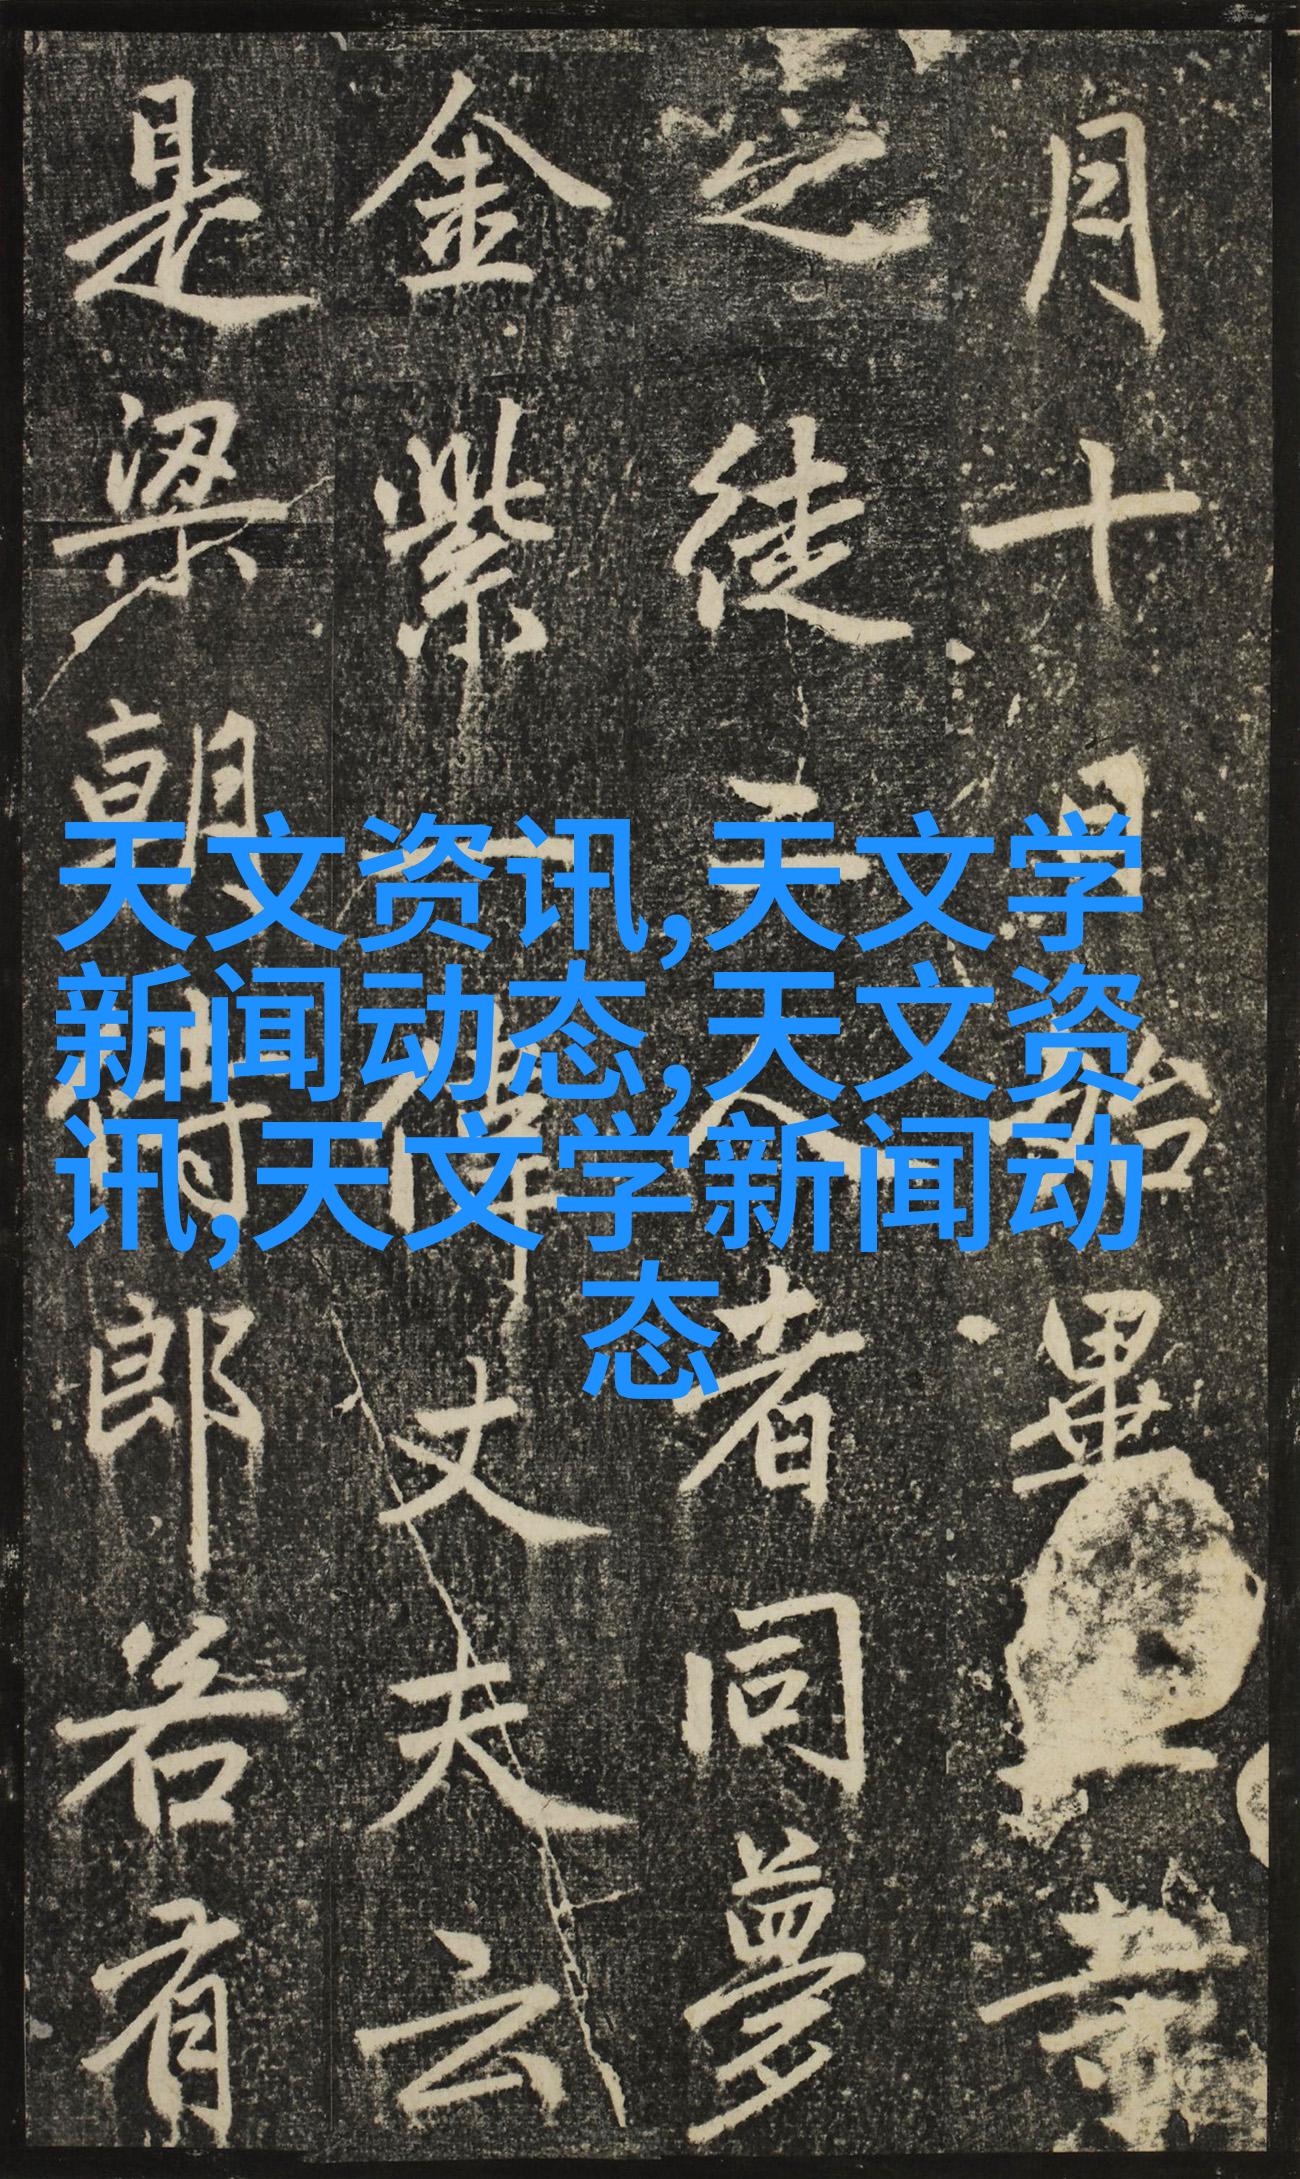 天文资讯,天文学
新闻动态,天文资
讯,天文学新闻动
态
月十日始畢
之徒三人者同夢
金紫一偉丈夫云
是梁朝侍郎若有